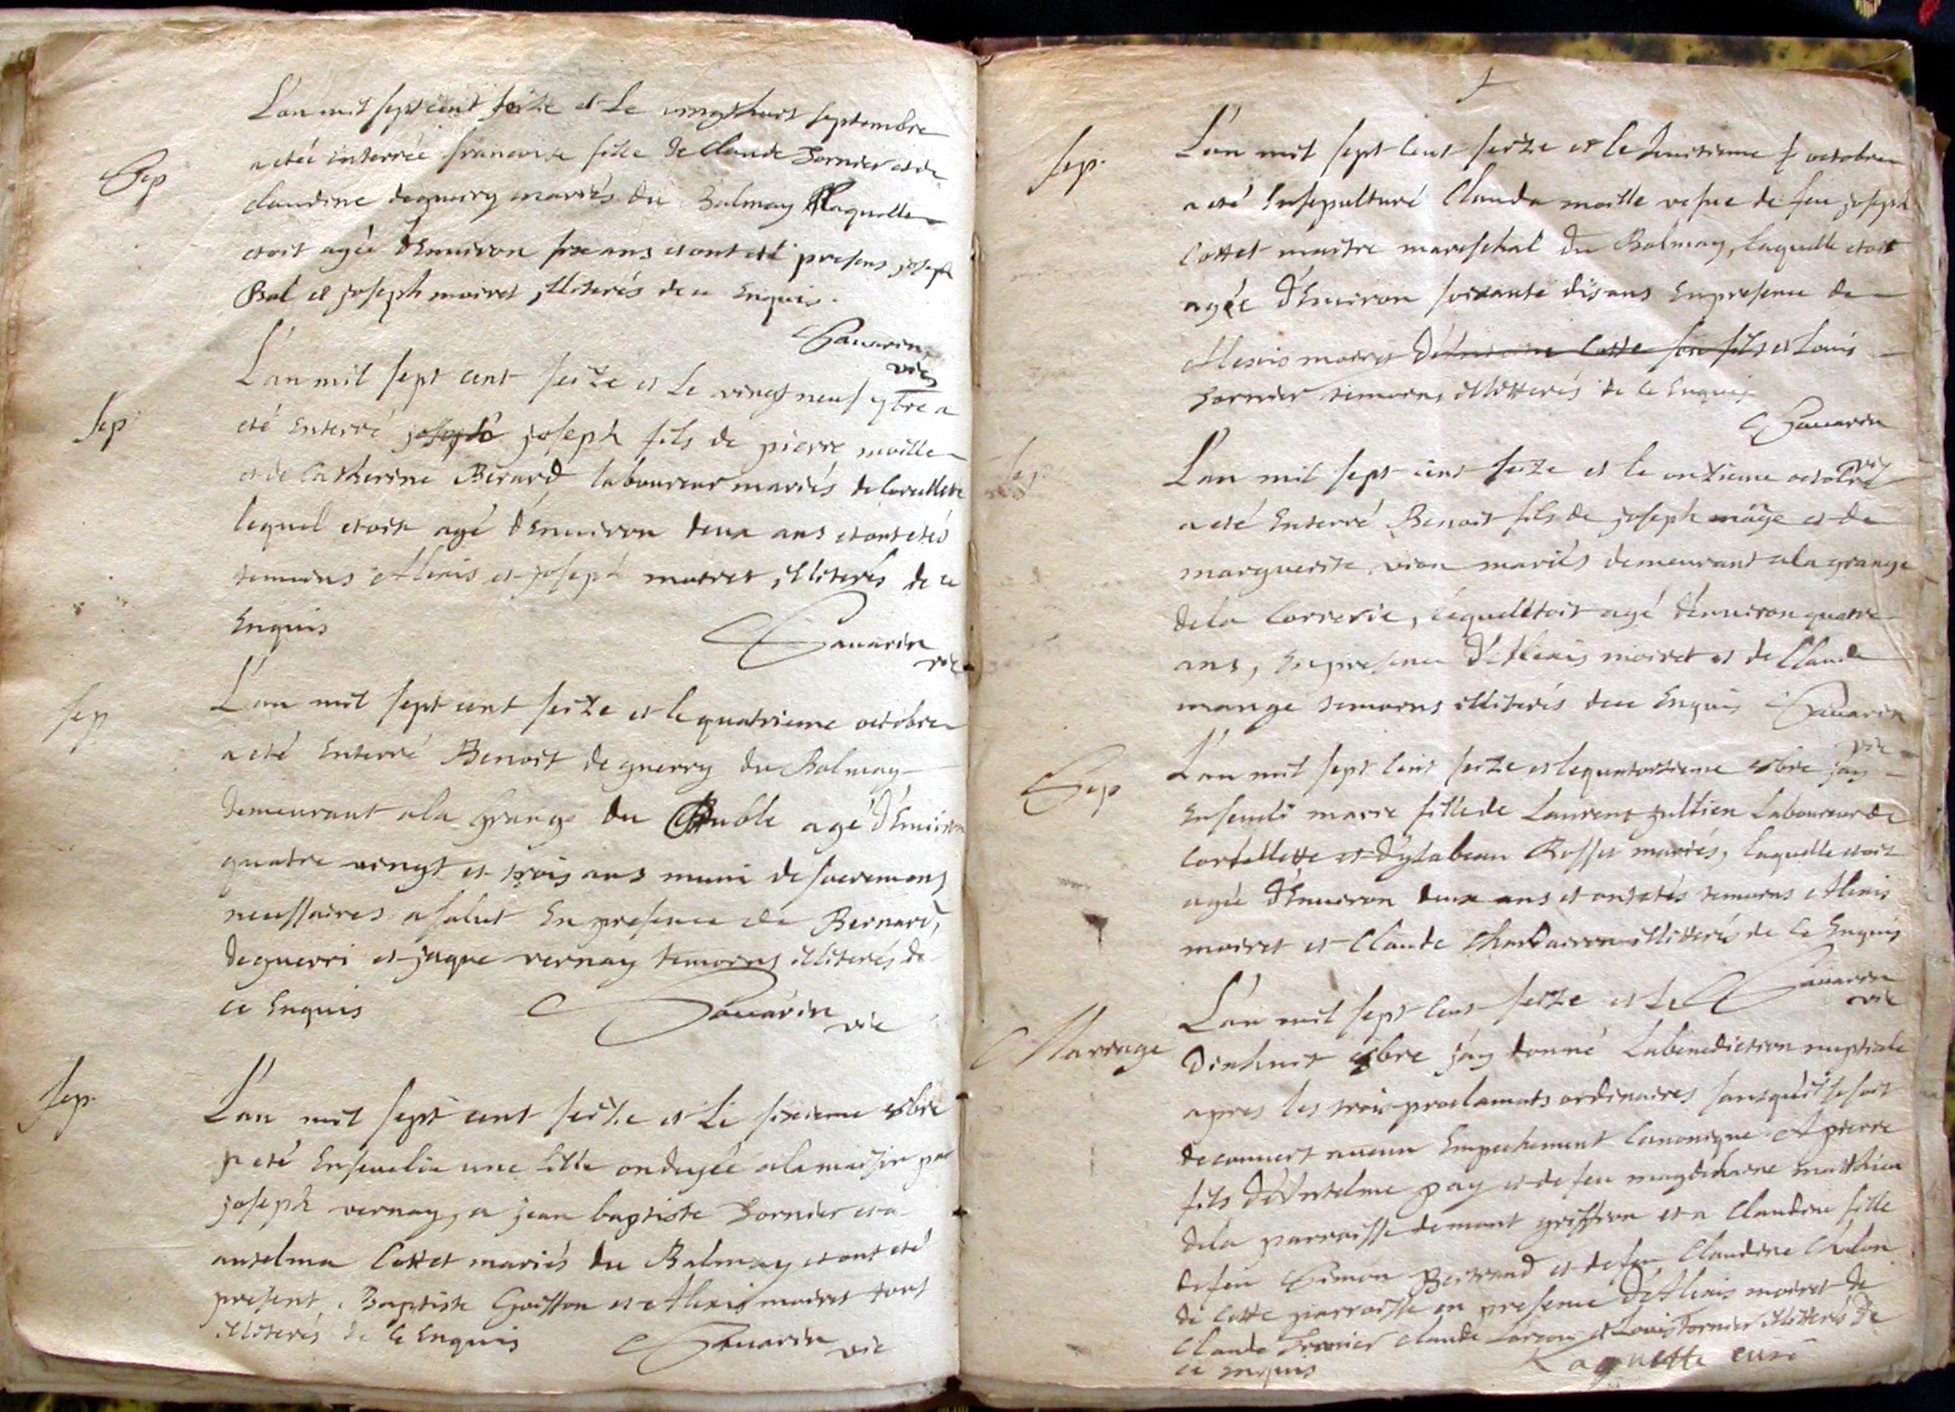 L'an mil sept cent seize et Le vingt huit septembre
Sep
a etée enterrée francoise fille de Claude Tornier et de
claudine deguerry mariés du Balmay Laquelle
etoit agée d'Environ six ans et ont eté presens joseph
Bal et joseph moiret illiterés de ce Enquis.
Savarin
vic
L'an mil sept cent seize et Le vingt neuf 7bre a
Sep
eté Enterré joseph fils de pierre moille
et de Catherine Berard laboureur mariés de
lequel etoit agé d'Environ deux ans et ont etés
temoins Alexis et joseph moiret illiterés de ce
Enquis
Savarin
vic
Sep
L'an mil sept cent seize et le quatrieme octobre
a eté Enterré Benoit deguerry du Balmay
demeurant a la grange du agé d'Environ
quatre vingt et trois ans muni de sacremens
necessaires a salut En presence de Bernard
deguerri et jaque vernay temoins illiterés de
ce Enquis
Savarin
vic
Sep
L'an mil sept cent seize et Le sixieme 8bre
a eté Ensevelie une fille ondoyée a la maison par
joseph vernay, a jean baptiste Tornier et a
anselma Cottet mariés du Balmay et ont eté
present Baptiste Goiffon et Alexis moiret tous
illiterés de ce Enquis
Savarin
vic
Sep
L'an mil sept cent seize et le huitieme octobre
a eté Ensepulturé Clauda moille vefue de feu joseph
Cottet maitre mareschal du Balmay, laquelle etoit
agée d'Environ soixante dis ans En presence de
Alexis moiret et Louis
Tornier temoins illitterés de ce Enquis
Savarin
vic
Sep
L'an mil sept cent seize et le onzieme octobre
a eté Enterré Benoit fils de joseph et de
marguerite vion mariés demeurant a la grange
de la Correrie, lequel etoit agé d'environ quatre
ans, En presence d'Alexis moiret et de Claude
mange temoins illiterés de ce Enquis
Savarin
vic
Sep
L'an mil sept cent seize et le quatorzieme 8bre jay
Enseveli marie fille de Laurent Jullien Laboureur de
et d'ysabeau Rosset mariés, laquelle etoit
agée d'Environ deux ans et ont etés temoins Alexis
moiret et Claude illitterés de ce Enquis
Savarin
vic
L'an mil sept cent seize et Le
Marriage
dixhuit 8bre j'ay donné La benediction nuptiale
apres les trois proclamats ordinaires sans qu'il se soit
decouvert aucun Empechement Canonique A pierre
fils d'Anselme pay et de feu magdelaine matthieu
de la parroisse de mont griffon et a Claudine fille
de feu Simon Bertrand et de feu Claudine Chalon
de cette parroisse en presence d'Alexis moiret de
Claude Tornier Claude et Louis Tornier illitterés de
ce enquis
Raquette curé